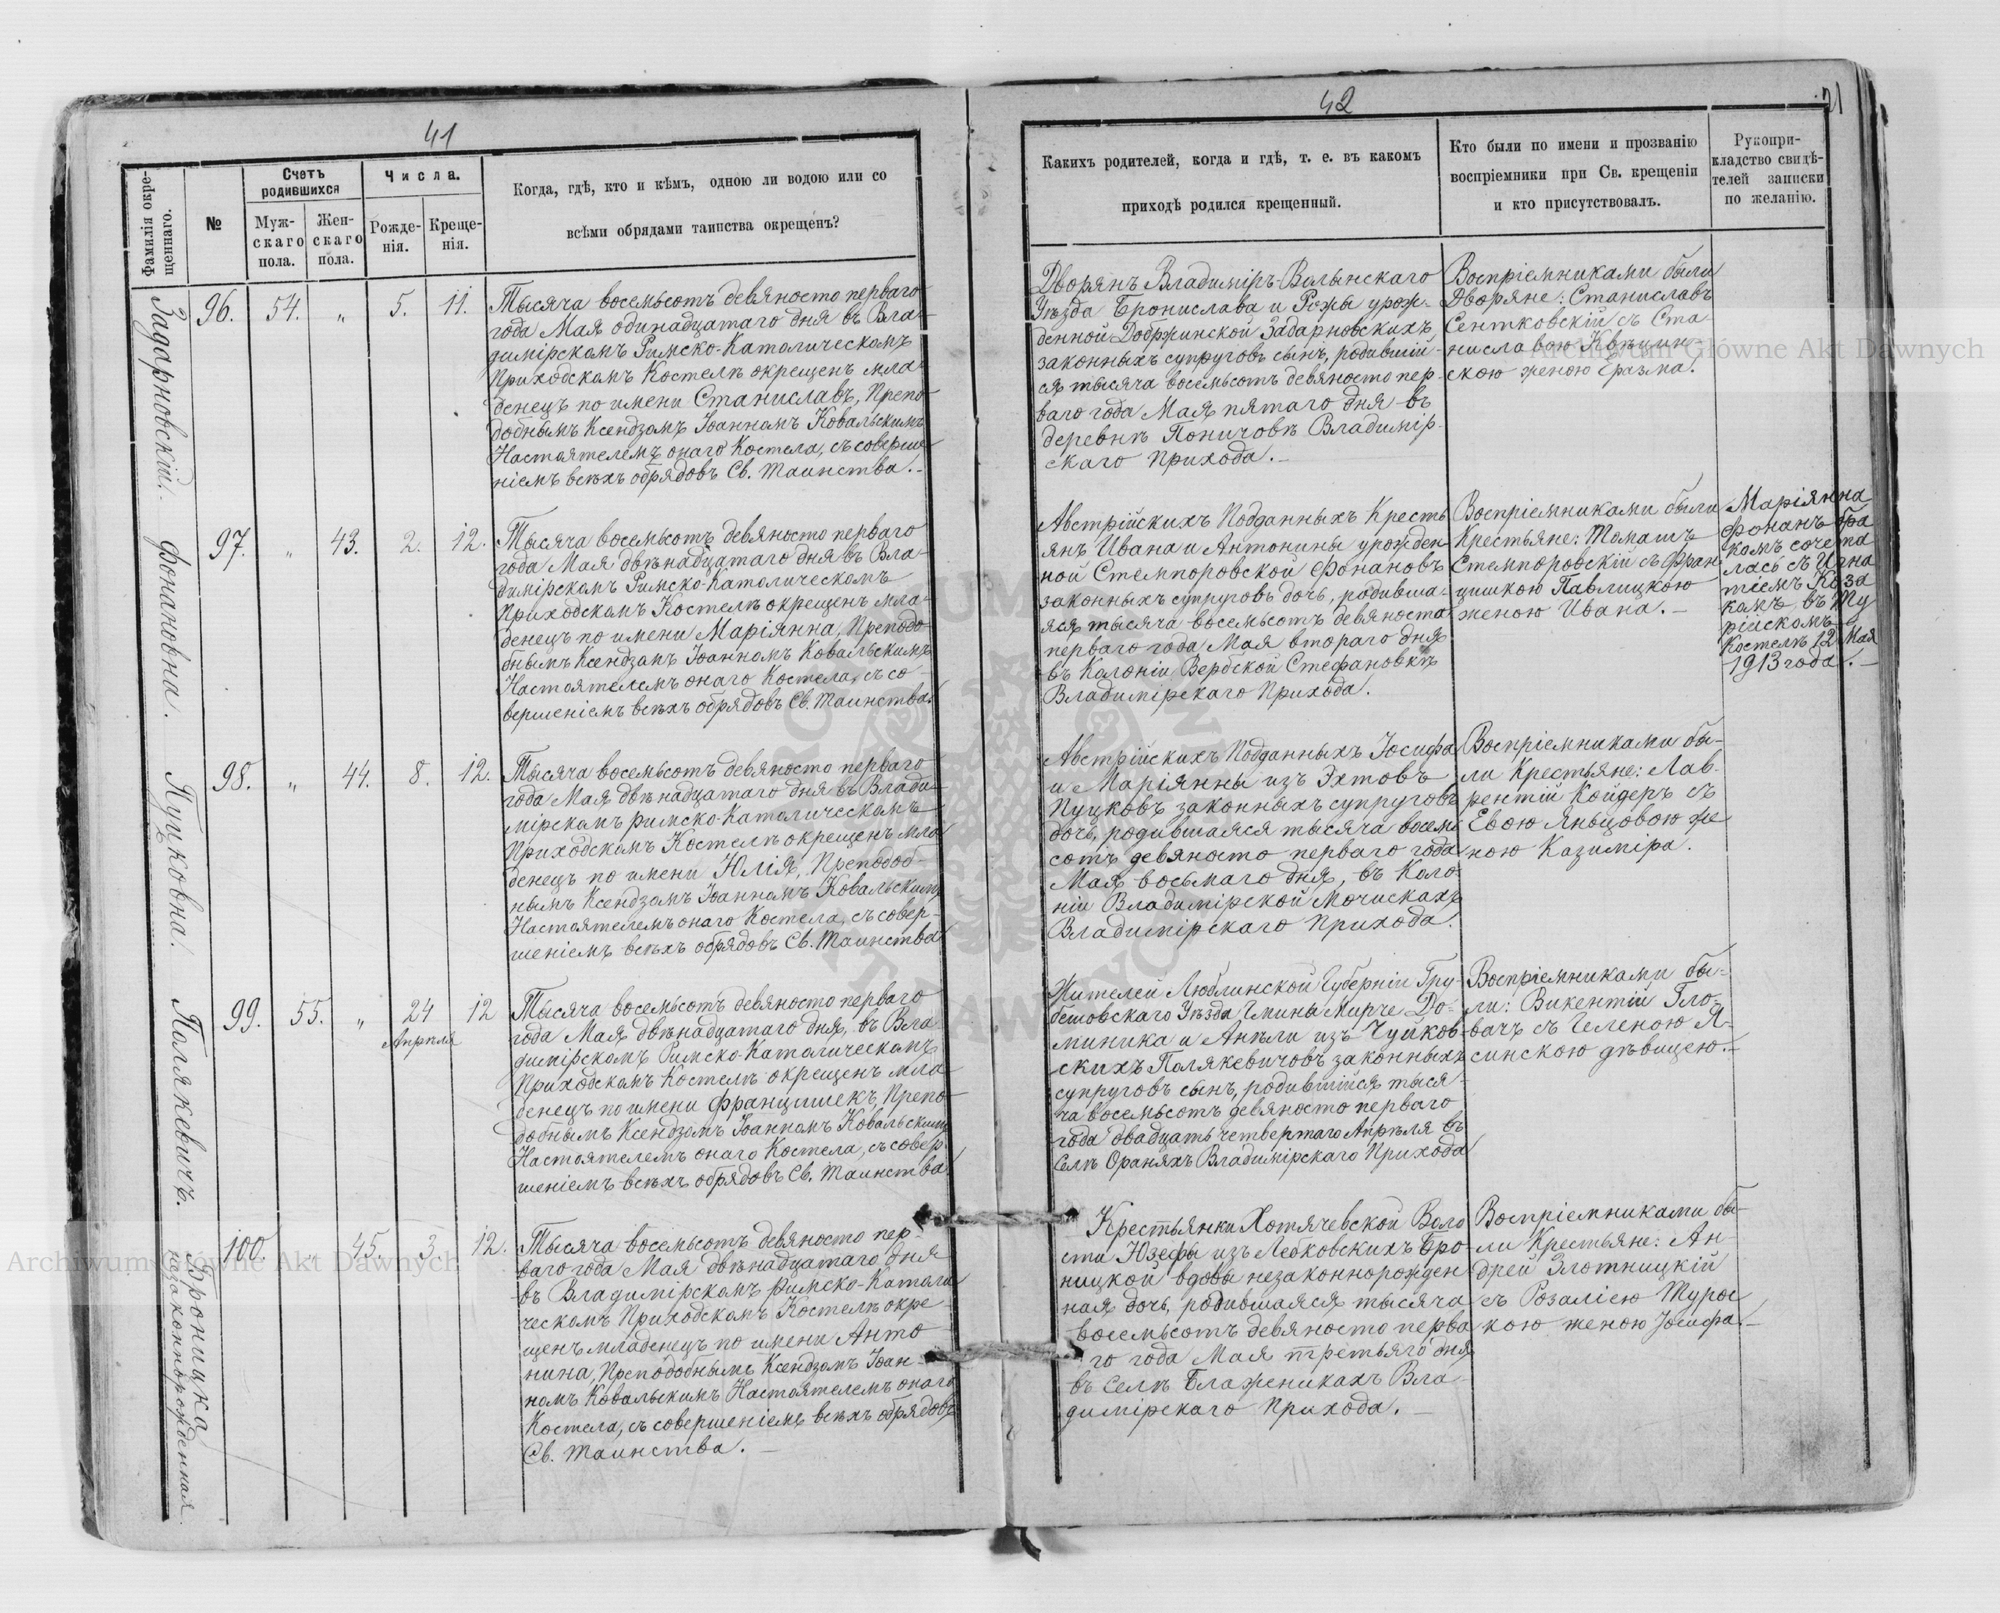 41
Фамилія окре-
щеннаго.
№
Счетъ
родившихся
Муж-
скаго
пола.
Жен-
скаго
пола.
Числа.
Рожде-
нія.
Креще-
нія.
Когда, гдѣ, кто и кѣмъ, одною ли водою или со
всѣми обрядами таинства окрещенъ?
Задарновскій.
96. 54. „ 5. 11.
Тысяча восемьсотъ девяносто перваго
года Мая одинадцатаго дня въ Вла-
димірскомъ Римско-Католическомъ
Приходскомъ Костелѣ окрещенъ мла-
денецъ по имени Станиславъ, Препо-
добнымъ Ксендзомъ Іоанномъ Ковальскимъ
Настоятелемъ онаго Костела, съ соверше-
ніемъ всѣхъ обрядовъ Св. Таинства.-
Фонановна.
97. „ 43. 2. 12.
Тысяча восемьсотъ девяносто перваго
года Мая двѣнадцатаго дня въ Вла-
димірскомъ Римско-Католическомъ
Приходскомъ Костелѣ окрещен мла-
денецъ по имени Маріянна, Преподо-
бнымъ Ксендзомъ Іоанномъ Ковальскимъ
Настоятелемъ онаго Костела, съ со-
вершеніемъ всѣхъ обрядовъ Св. Таинства.
Пуцковна.
98. „ 44. 8. 12.
Тысяча восемьсотъ девяносто перваго
года Мая двѣнадцатаго дня въ Влади-
мірскомъ Римско-Католическомъ
Приходскомъ Костелѣ окрещенъ мла
денецъ по имени Юлія, Преподоб-
нымъ Ксендзомъ Іоанномъ Ковальскимъ
Настоятелемъ онаго Костела, съ совер-
шеніемъ всѣхъ обрядовъ Св. Таинства
Полякевичъ.
99. 55. „ 24 12
Апрѣля
Тысяча восемьсотъ девяносто перваго
года Мая двѣнадцатаго дня, въ Вла
димірскомъ Римско-Католическомъ
Приходскомъ Костелѣ окрещенъ мла-
денецъ по имени Францишекъ, Препо-
добнымъ Ксендзомъ Іоанномъ Ковальскимъ
Настоятелемъ онаго Костела, съ совер-
шеніемъ всѣхъ обрядовъ Св. Таинства
Броницка
незаконнорожденная
100. 45. 3. 12.
Тысяча восемьсотъ девяносто пер-
ваго года Мая двѣнадцатаго дня
въ Владимірскомъ Римско-Катола
ческомъ Приходскомъ Костелѣ окре-
щенъ младенецъ по имени Анто-
нина, Преподобнымъ Ксендзомъ Іоан-
номъ Ковальскимъ Настоятелемъ онаго
Костела, съ совершеніемъ всѣхъ обрядовъ
Св. Таинства. —
42
21
Какихъ родителей, когда и гдѣ, т. е. въ какомъ
приходѣ родился крещенный.
Кто были по имени и прозванію
воспріемники при Св. крещеніи
и кто присутствовалъ.
Рукопри-
кладство свидѣ-
телей записки
по желанію.
Дворянъ Владиміръ-Волынскаго
Уѣзда Бронислава и Рожы урож-
денной Добржинской Задарновскихъ
законныхъ супруговъ сынъ, родившій-
ся тысяча восемьсотъ девяносто пер-
ваго года Мая пятаго дня въ
деревнѣ Поничовѣ Владимір-
скаго Прихода.-
Воспріемниками были
Дворяне: Станиславъ
Сентковскій съ Ста-
ниславою
скою женою Еразма.
Австрійскихъ Подданныхъ Кресть
янъ Ивана и Антонины урожден-
ной Стемпоровской Фонановъ
законныхъ супруговъ дочь, родивша-
яся тысяча восемьсотъ девяноста
перваго года Мая втораго дня
въ Колоніи Вербской Стефановкѣ
Владимірскаго Прихода.
Воспріемниками были
Крестьяне: Томашъ
Стемпоровскій съ Фран
цишкою Павлицкою
женою Ивана. —
Маріянна
Фонанъ бра
комъ сочета
лась съ Игна
тіемъ Коза
комъ въ Ту
рійскомъ
Костелѣ 12 Мая
1913 года. —
Австрійскихъ Подданныхъ Іосифа
и Маріянны изъ Эхтовъ
Пуцковъ законныхъ супруговъ
дочь, родившаяся тысяча восемь
сотъ девяносто перваго года
Мая восьмаго дня, въ Коло-
ніи Владимірской Мочискахъ
Владимірскаго Прихода.
Воспріемниками бы-
ли Крестьяне: Лав-
рентій Койдеръ съ
Евою Яньцовою же
ною Казиміра.
Жителей Люблинской Губерніи Гру-
бешовскаго Уѣзда Гмины Мирче До-
миника и Анѣли изъ Чуйков-
скихъ Полякевичовъ законныхъ
супруговъ сынъ, родившійся тыся-
ча восемьсотъ девяносто перваго
года двадцать четвертаго Апрѣля въ
Селѣ Ораняхъ Владимірскаго Прихода
Воспріемниками бы-
ли: Викентій Гло-
вачъ съ Геленою Я-
синскою дѣвицею.-
Крестьянки Хотячевской Воло
сти Юзефы изъ Лебковскихъ Бро-
ницкой вдовы незаконнорожден
ная дочь, родившаяся тысяча
восемьсотъ девяносто перва
го года Мая третьяго дня
въ Селѣ Блаженикахъ Вла-
димірскаго Прихода. —
Воспріемниками бы-
ли Крестьяне: Ан-
дрей Злотницкій
съ Розаліею Турос
кою женою Іосифа.-
Archiwum Główne Akt Dawnych
Archiwum Główne Akt Dawnych